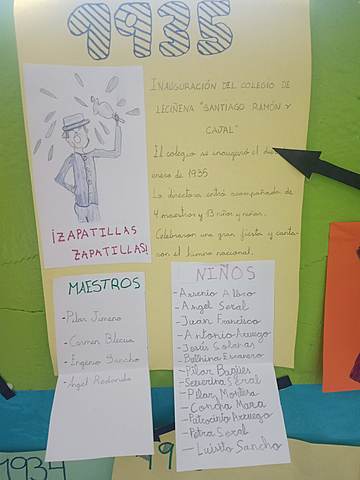 1935
INAUGURACIÓN DEL COLEGIO DE
LECIÑENA "SANTIAGO RAMÓN Y
CAJAL"
El colegio se inauguró el día
enero de 1935
La directora entró acompañada de
4 maestros y 13 niños y niñas.
Celebraron una gran fiesta y canta
ron el himno nacional.
¡ZAPATILLAS
ZAPATILLAS!
MAESTROS
-Pilar Jimeno
-Carmen Blecua
-Eugenio Sancho
-Angel Redondo
NIÑOS
-Arsenio Albro
-Angel Seral
-Juan Francisco
-Antonio Arruego
-Jesús Solanas
-Bethina Escanero
-Pilar Bagües
-Severina Seral
-Pilar Montera
-Concha Maza
-Patrocinio Arruego
-Petra Seral
-Luisito Sancho
1934